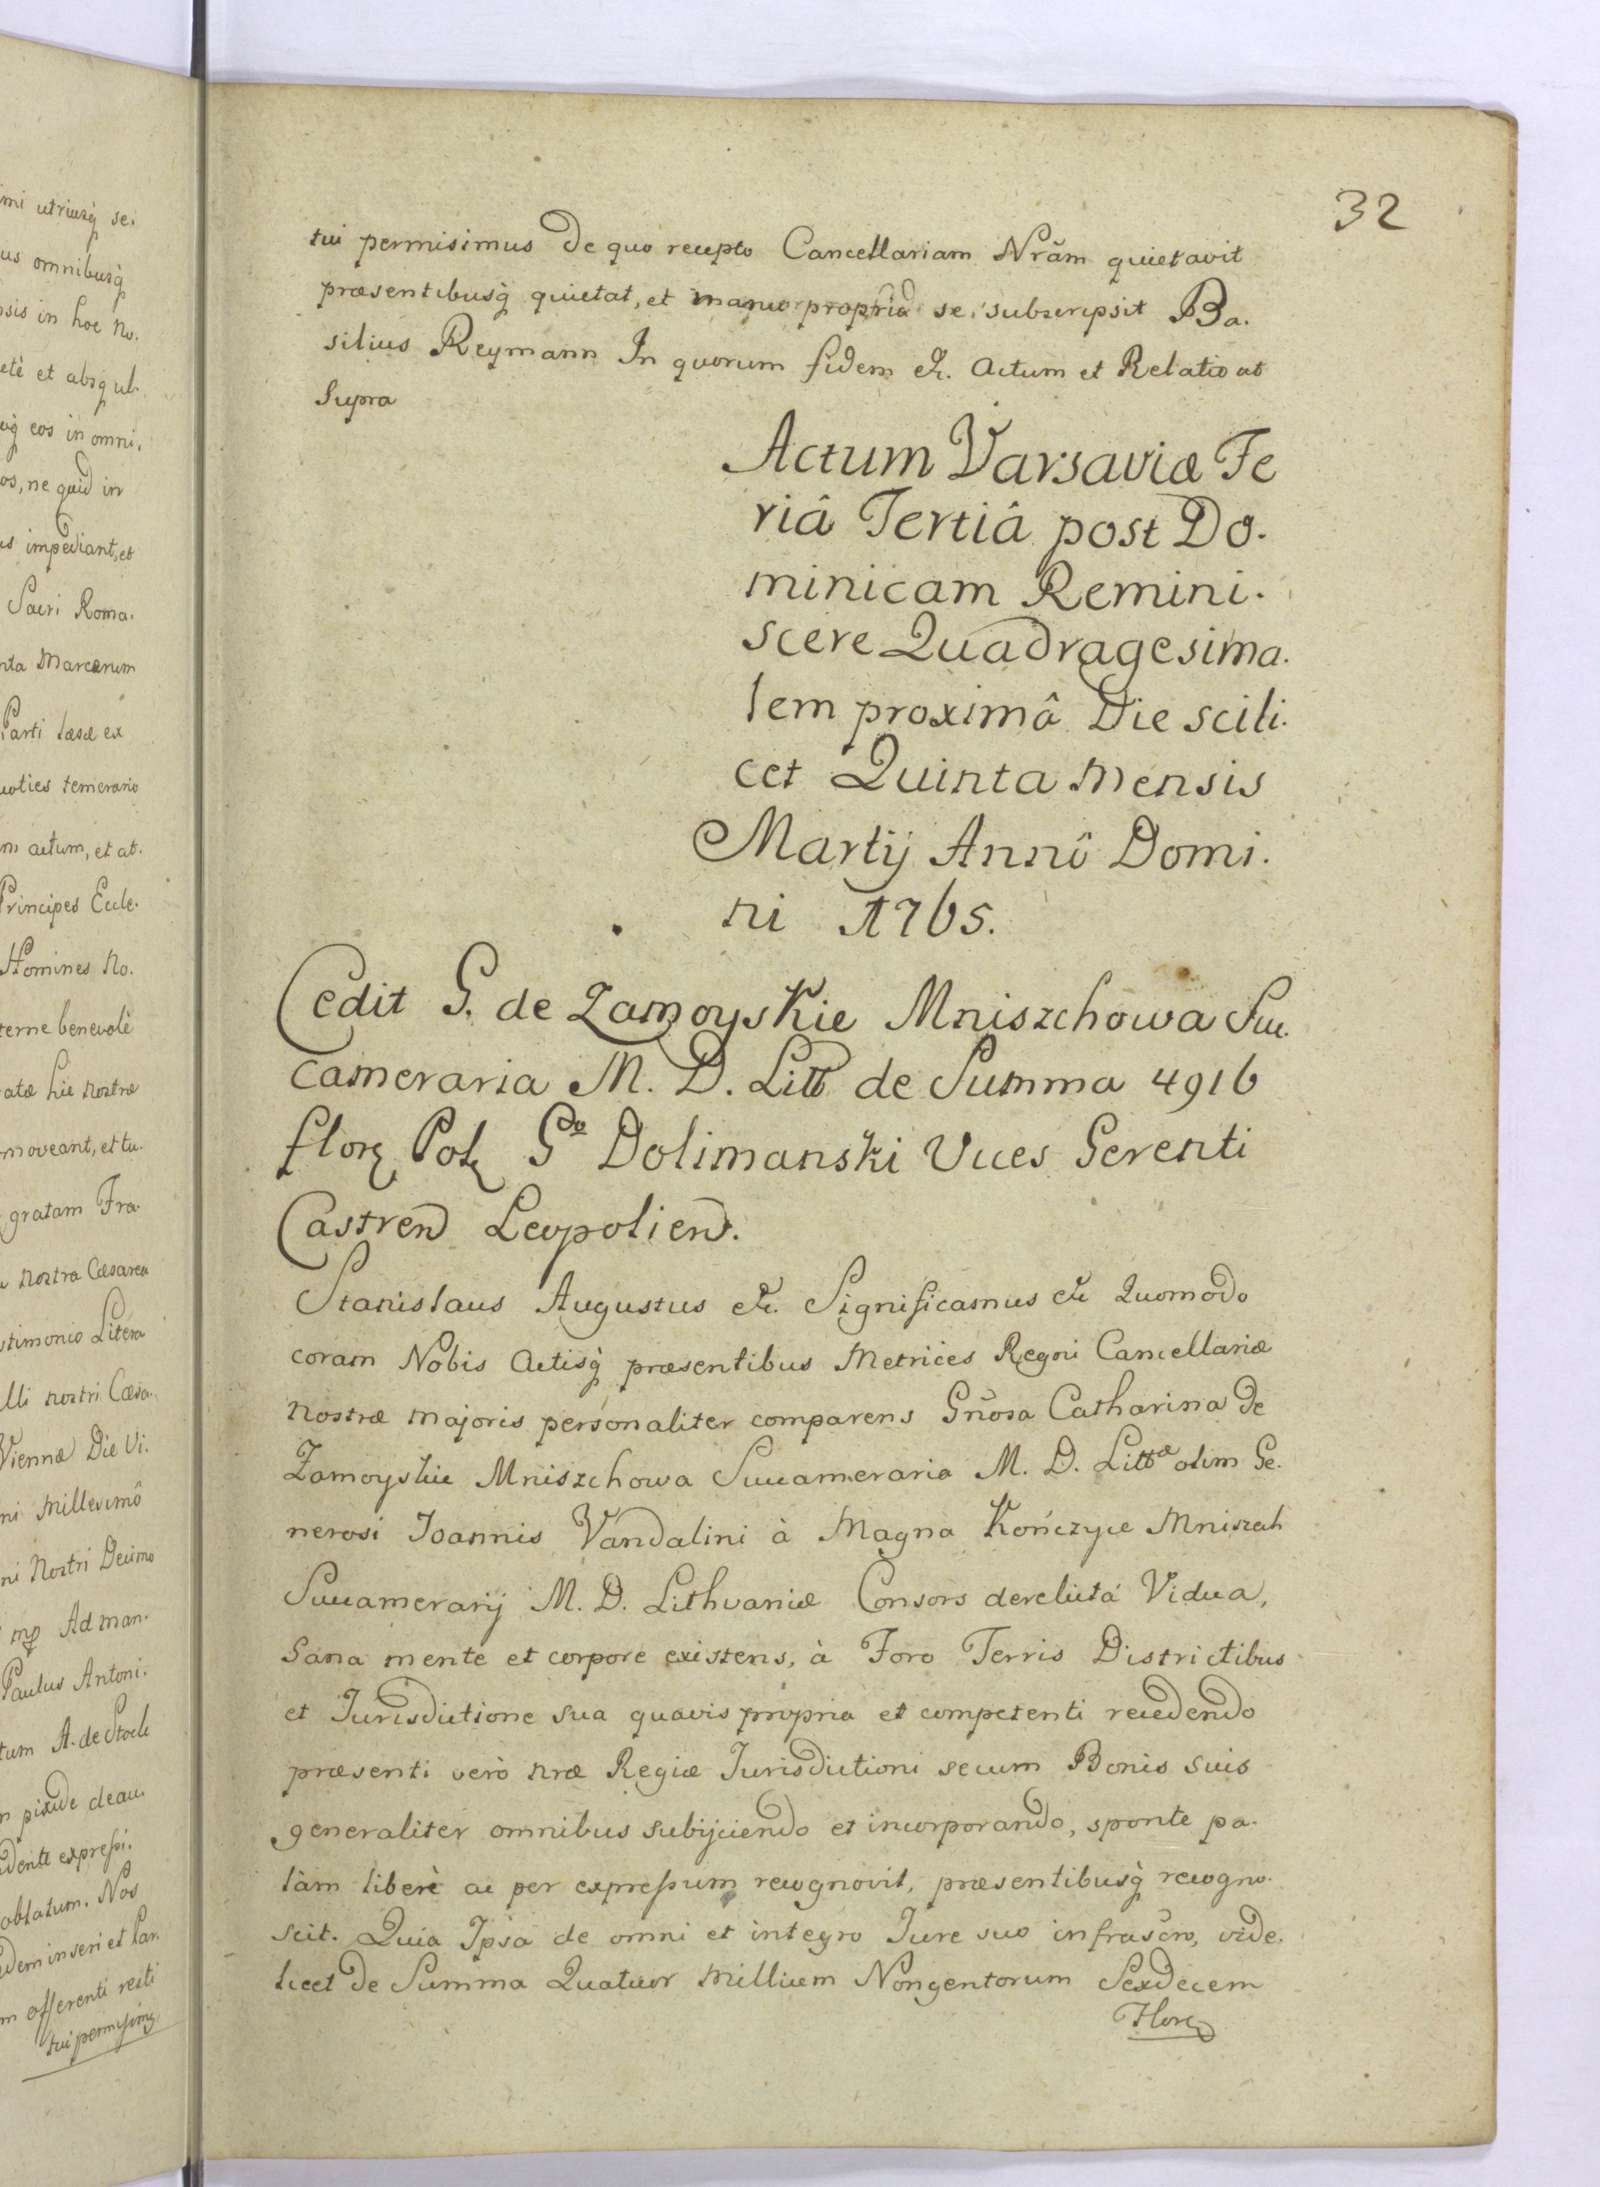 mi utriusq̀ se.
us omnibusq̀
sis in hoc No.
etè et absq ul.
q̀ eos in omni,
os, ne quid in
us impediant, et
Sacri Roma.
nta Marcarum
Parti læsæ ex
uoties temerario
m actum, et at.
Principes Eccle.
Homines No.
terne benevolè
atæ hic nostræ
moveant, et tu.
gratam Fra.
nostra Cæsarea
timonio Litera
lli nostri Cæsa.
Viennæ Die Vi.
ni Millesimô
ni Nostri Decimo
mp Ad man.
Paulus Antoni.
tum A. de Stock
n pixide deau.
dente expreßi.
oblatum. Nos
dem inseri et Par.
m offerenti resti
tui permisimq
32
tui permisimus de quo recepto Cancellariam Nrãm quietavit
præsentibusq̀ quietat, et manu propriâ se subscripsit Ba.
silius Reymann In quorum fidem etc. Actum et Relatio ut
Supra
Actum Varsaviæ Fe
riâ Tertiâ post Do.
minicam Remini.
scere Quadragesima.
lem proximâ Die scili.
cet Quinta Mensis
Martij Annô Domi.
ni 1765.
Cedit G. de Zamoyskie Mniszchowa Suc.
cameraria M. D. Litt de Summa 4916
flor Pol G̊ do Dolimanski Vices Gerenti
Castren Leopolien.
Stanislaus Augustus etc. Significamus etc Quomodo
coram Nobis Actisq̀ præsentibus Metrices Regni Cancellariæ
nostræ majoris personaliter comparens Gñosa Catharina de
Zamoyskie Mniszchowa Succameraria M. D. Littæ olim Ge.
nerosi Joannis Vandalini à Magna Kończyce Mniszch
Succamerarij M. D. Lithvaniæ Consors derelicta Vidua,
Sana mente et corpore existens, à Foro Terris Districtibus
et Jurisdictione sua quavis propria et competenti recedendo
præsenti verò nræ Regiæ Jurisdictioni secum Bonis suis
generaliter omnibus subijciendo et incorporando, sponte pa.
làm liberè ac per expreßum recognovit, præsentibusq̀ recogno.
scit. Quia Ipsa de omni et integro Jure suo infrascro, vide.
licet de Summa Quatuor Millium Nongentorum Sexdecem
Flore